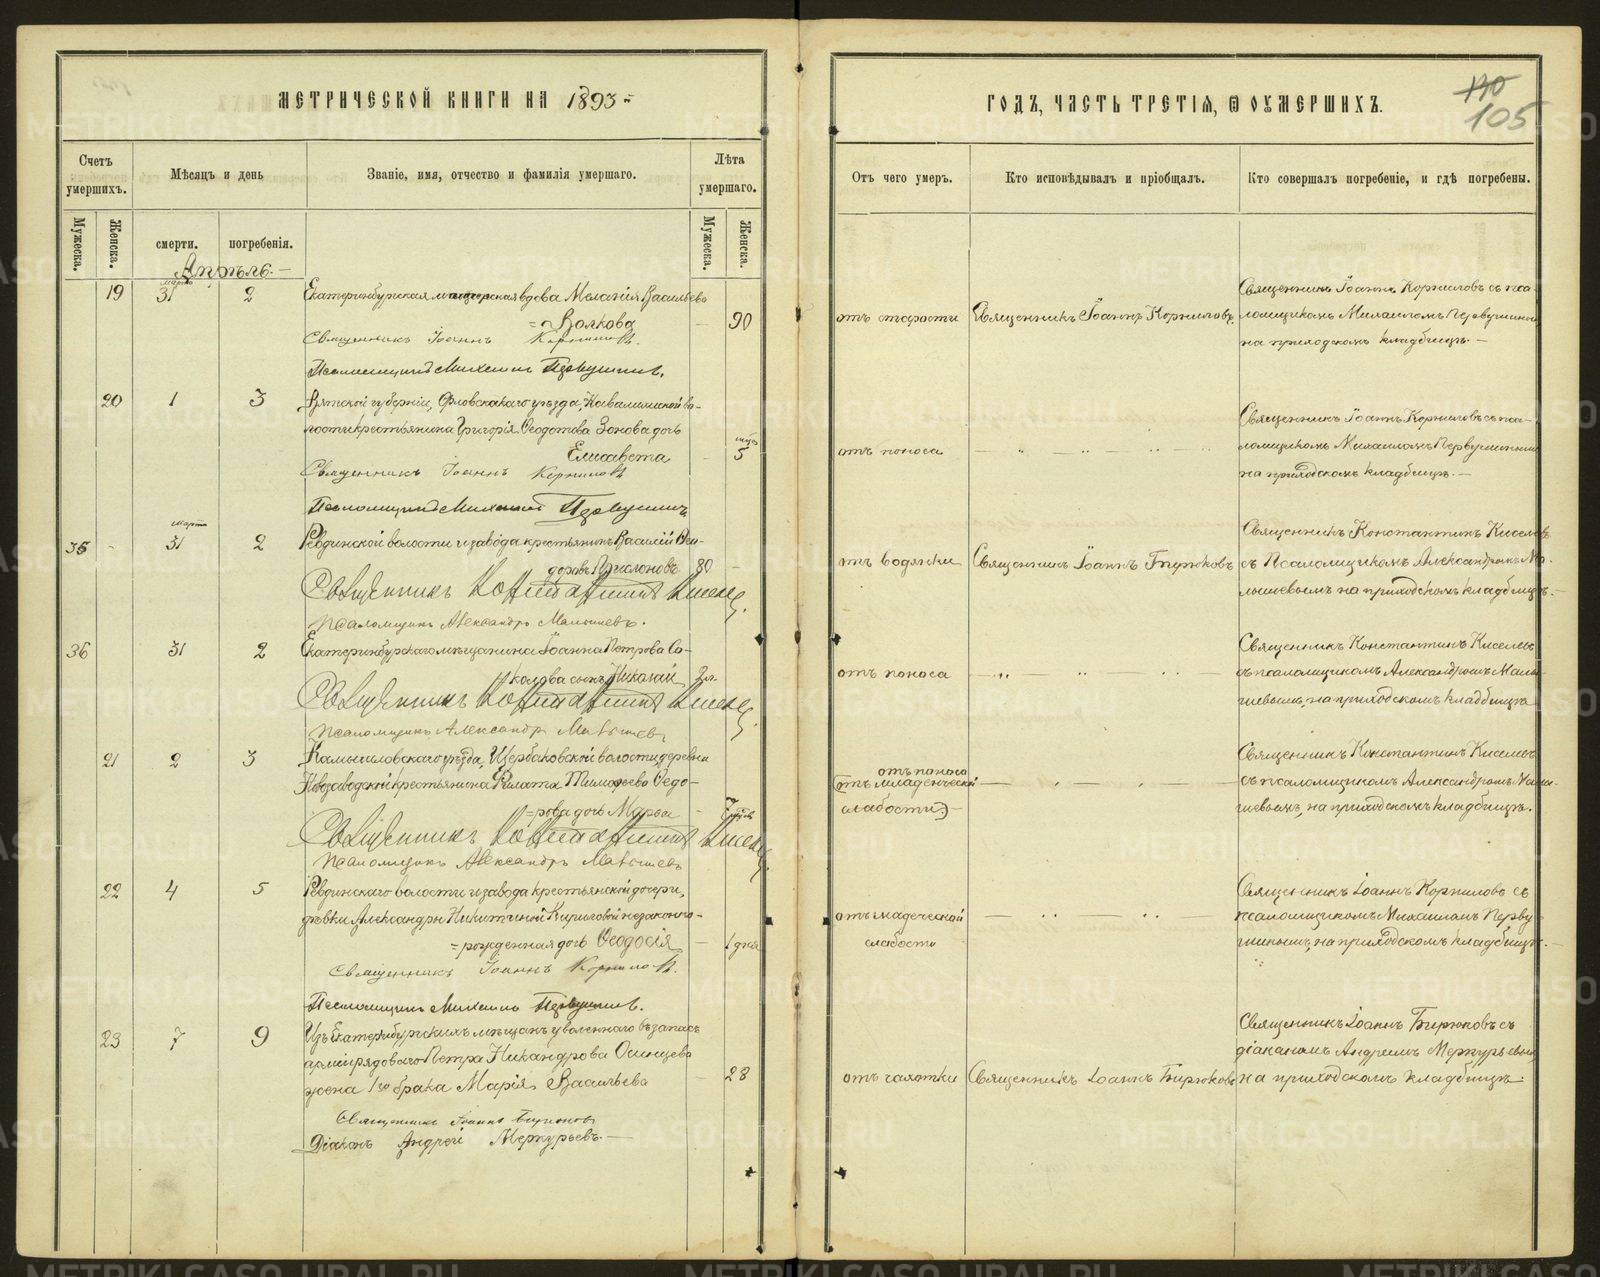 МЕТРИЧЕСКОЙ КНИГИ НА 1893-й
Счетъ умершихъ.
Мужеска.
Женска.
Мѣсяцъ и день
смерти.
погребенія.
Званіе, имя, отчество и фамилія умершаго.
Лѣта умершаго.
Мужеска.
Женска.
Апрѣль.
марта
19 31 2 Екатеринбургская вдова Меланія Васильева
Волкова 90
Священникъ Іоаннъ Корниловъ.
Псаломщикъ Михаилъ Первушинъ.
20 1 3 Вятской губерніи, Орловскаго уѣзда, во-
лости крестьянина Григорія Ѳедотова Зонова дочь
Елисавета 5
Священникъ Іоаннъ Корниловъ
Псаломщикъ Михаилъ Первушинъ
марта
35 - 31 2 Ревдинской волости и завода крестьянинъ Василій Ѳео-
доровъ 80
Священникъ Константинъ Киселевъ
Псаломщикъ Александръ Малышевъ.
36 31 2 Екатеринбургскаго мѣщанина Іоанна Петрова Со-
колова сынъ Николай
Священникъ Константинъ Киселевъ
Псаломщикъ Александръ Малышевъ
21 2 3 Камышловскаго уѣзда, Щербаковской волости деревни
крестьянина Филата Тимоѳеева Ѳедо-
рова дочь Марѳа 7
Священникъ Константинъ Киселевъ
Псаломщикъ Александръ Малышевъ
22 4 5 Ревдинскаго волости и завода крестьянской дочери,
дѣвки Александры Никитиной незаконно-
=рожденная дочь Ѳеодосія 1 дня
Священникъ Іоаннъ Корниловъ.
Псаломщикъ Михаилъ Первушинъ.
23 7 9 Изъ Екатеринбургскихъ мѣщанъ уволеннаго въ запасъ
арміи рядоваго Петра Никандрова
жена 1го брака Марія Васильева 28
Священникъ Іоаннъ Бирюковъ
Діаконъ Андрей Меркурьевъ.
ГОДЪ, ЧАСТЬ ТРЕТІЯ, Ѿ ОУМЕРШИХЪ.
130
105
Отъ чего умеръ.
Кто исповѣдывалъ и пріобщалъ.
Кто совершалъ погребеніе, и гдѣ погребены.
Священникъ Іоаннъ Корниловъ съ пса-
отъ старости Священникъ Іоаннъ Корниловъ. ломщикомъ Михаиломъ Первушинымъ
на приходскомъ кладбищѣ.
Священникъ Іоаннъ Корниловъ съ пса-
отъ поноса ломщикомъ Михаиломъ Первушинымъ
на приходскомъ кладбищѣ.
Священникъ Константинъ Киселевъ
отъ водянки Священникъ Іоаннъ Бирюковъ съ Псаломщикомъ Александромъ Ма-
лышевымъ на приходскомъ кладбищѣ.
Священникъ Константинъ Киселевъ
отъ поноса съ псаломщикомъ Александромъ Малы-
шевымъ, на приходскомъ кладбищѣ
Священникъ Константинъ Киселевъ
отъ поноса
(отъ младенческой съ псаломщикомъ Александромъ Малы-
слабости) шевымъ, на приходскомъ кладбищѣ.
Священникъ Іоаннъ Корниловъ съ
отъ младенческой псаломщикомъ Михаиломъ Перву-
слабости шинымъ, на приходскомъ кладбищѣ.
Священникъ Іоаннъ Бирюковъ съ
діакономъ Андреемъ Меркурьевымъ
отъ чахотки Священникъ Іоаннъ Бирюковъ на приходскомъ кладбищѣ
METRIKI.GASO-URAL.RU